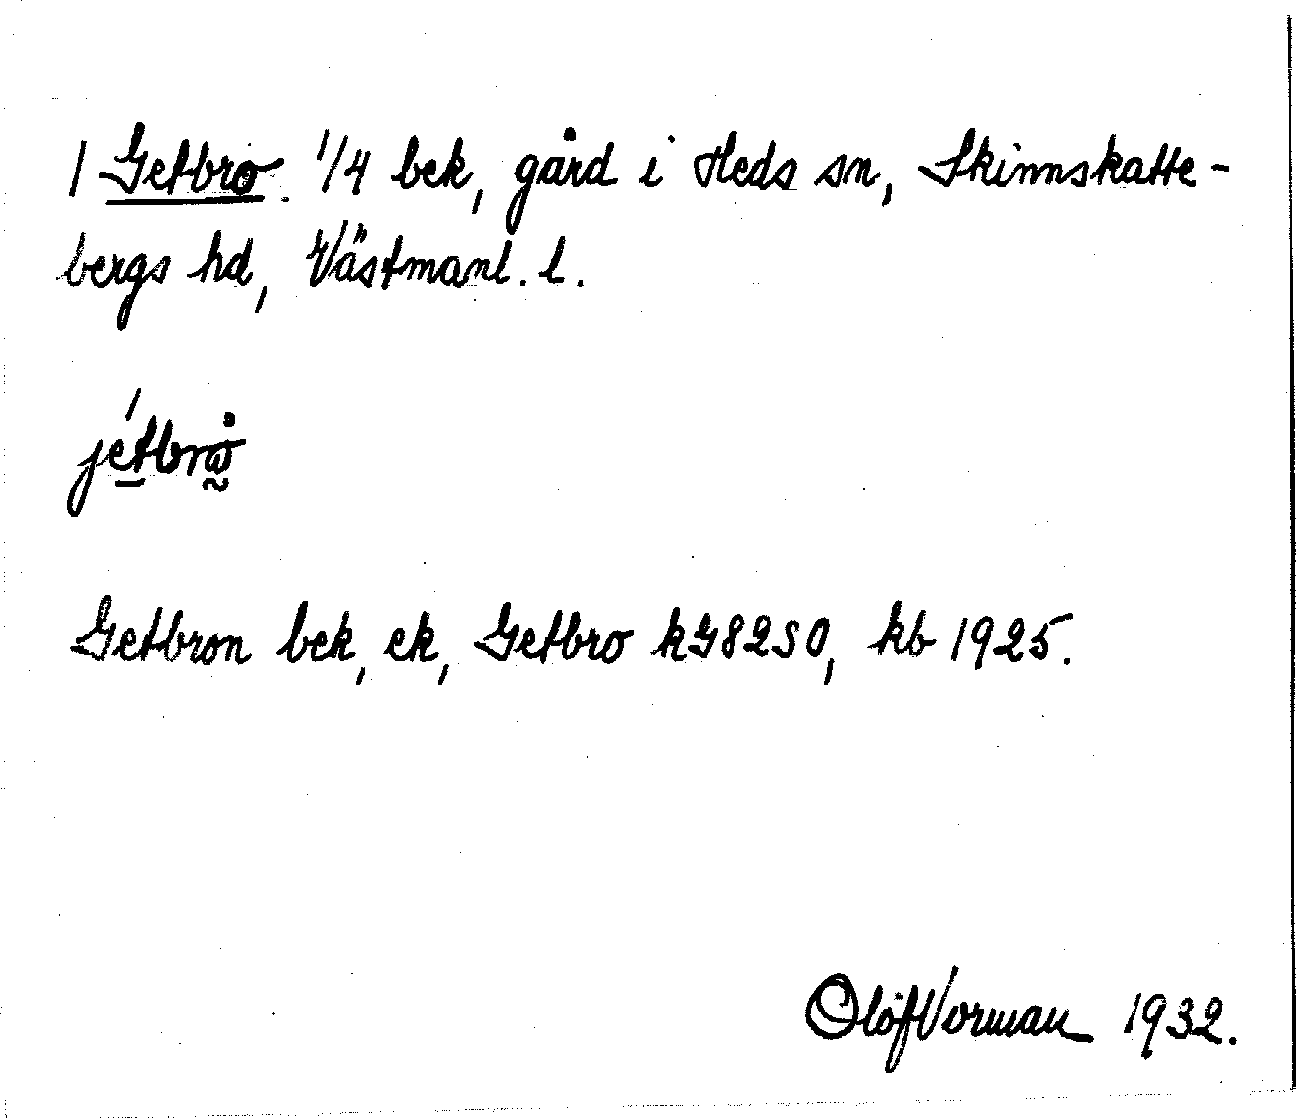 1 Getbro. 1/4 bek, gård i Heds sn, Skinnskatte-
bergs hd, Västmanl. l.
jétbrå̰
Getbron bek, ek, Getbro kG8250, kb 1925.
Olof Vorman 1932.